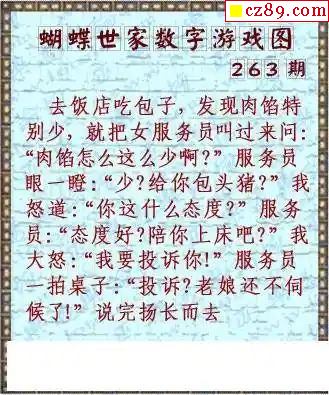 cz89.com
蝴蝶世家数字游戏图
263期
去饭店吃包子，发现肉馅特
别少，就把女服务员叫过来问：
“肉馅怎么这么少啊？”服务员
眼一瞪：“少？给你包头猪？”我
怒道：“你这什么态度？”服务
员：“态度好？陪你上床吧？”我
大怒：“我要投诉你！”服务员
一拍桌子：“投诉？老娘还不伺
候了！”说完扬长而去